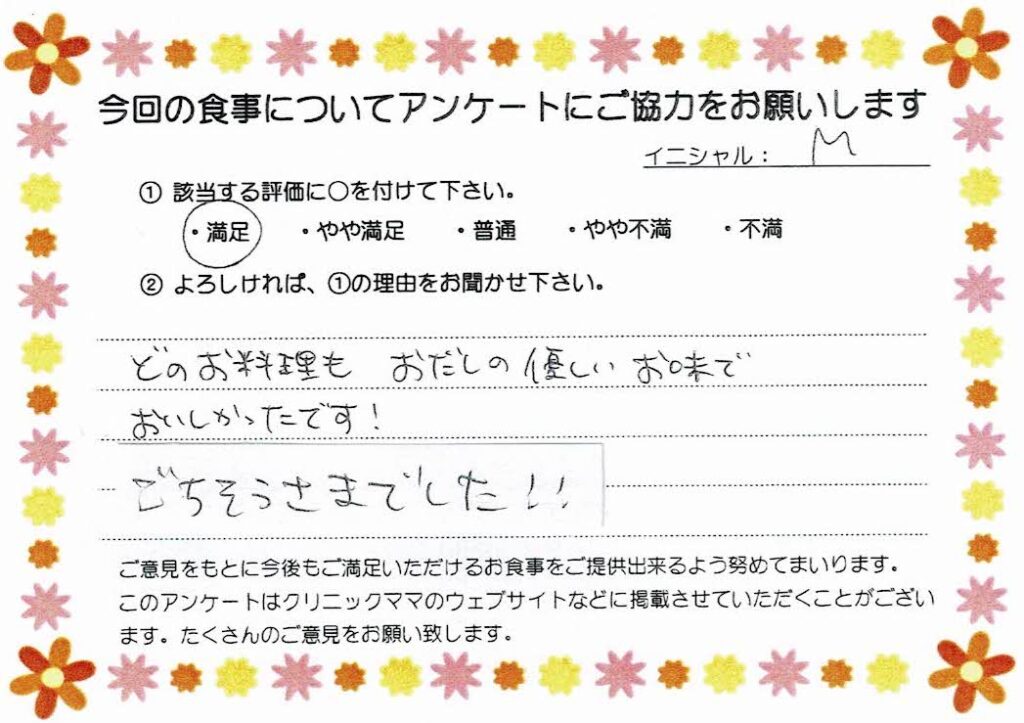 今回の食事についてアンケートにご協力をお願いします
イニシャル： M
① 該当する評価に○を付けて下さい。
・満足 ・やや満足 ・普通 ・やや不満 ・不満
② よろしければ、①の理由をお聞かせ下さい。
どのお料理も おだしの優しいお味で
おいしかったです！
ごちそうさまでした！！
ご意見をもとに今後もご満足いただけるお食事をご提供出来るよう努めてまいります。
このアンケートはクリニックママのウェブサイトなどに掲載させていただくことがござい
ます。たくさんのご意見をお願い致します。